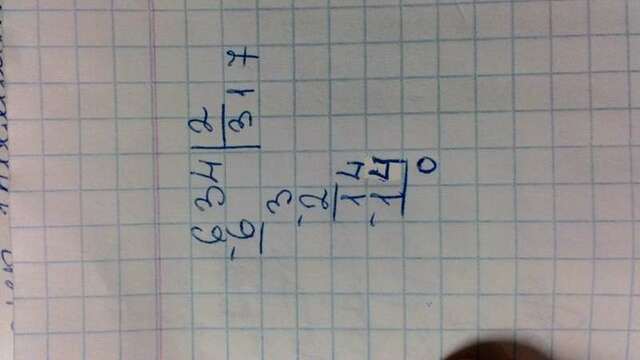 634 | 2
-6 | 317
3
-2
14
-14
0